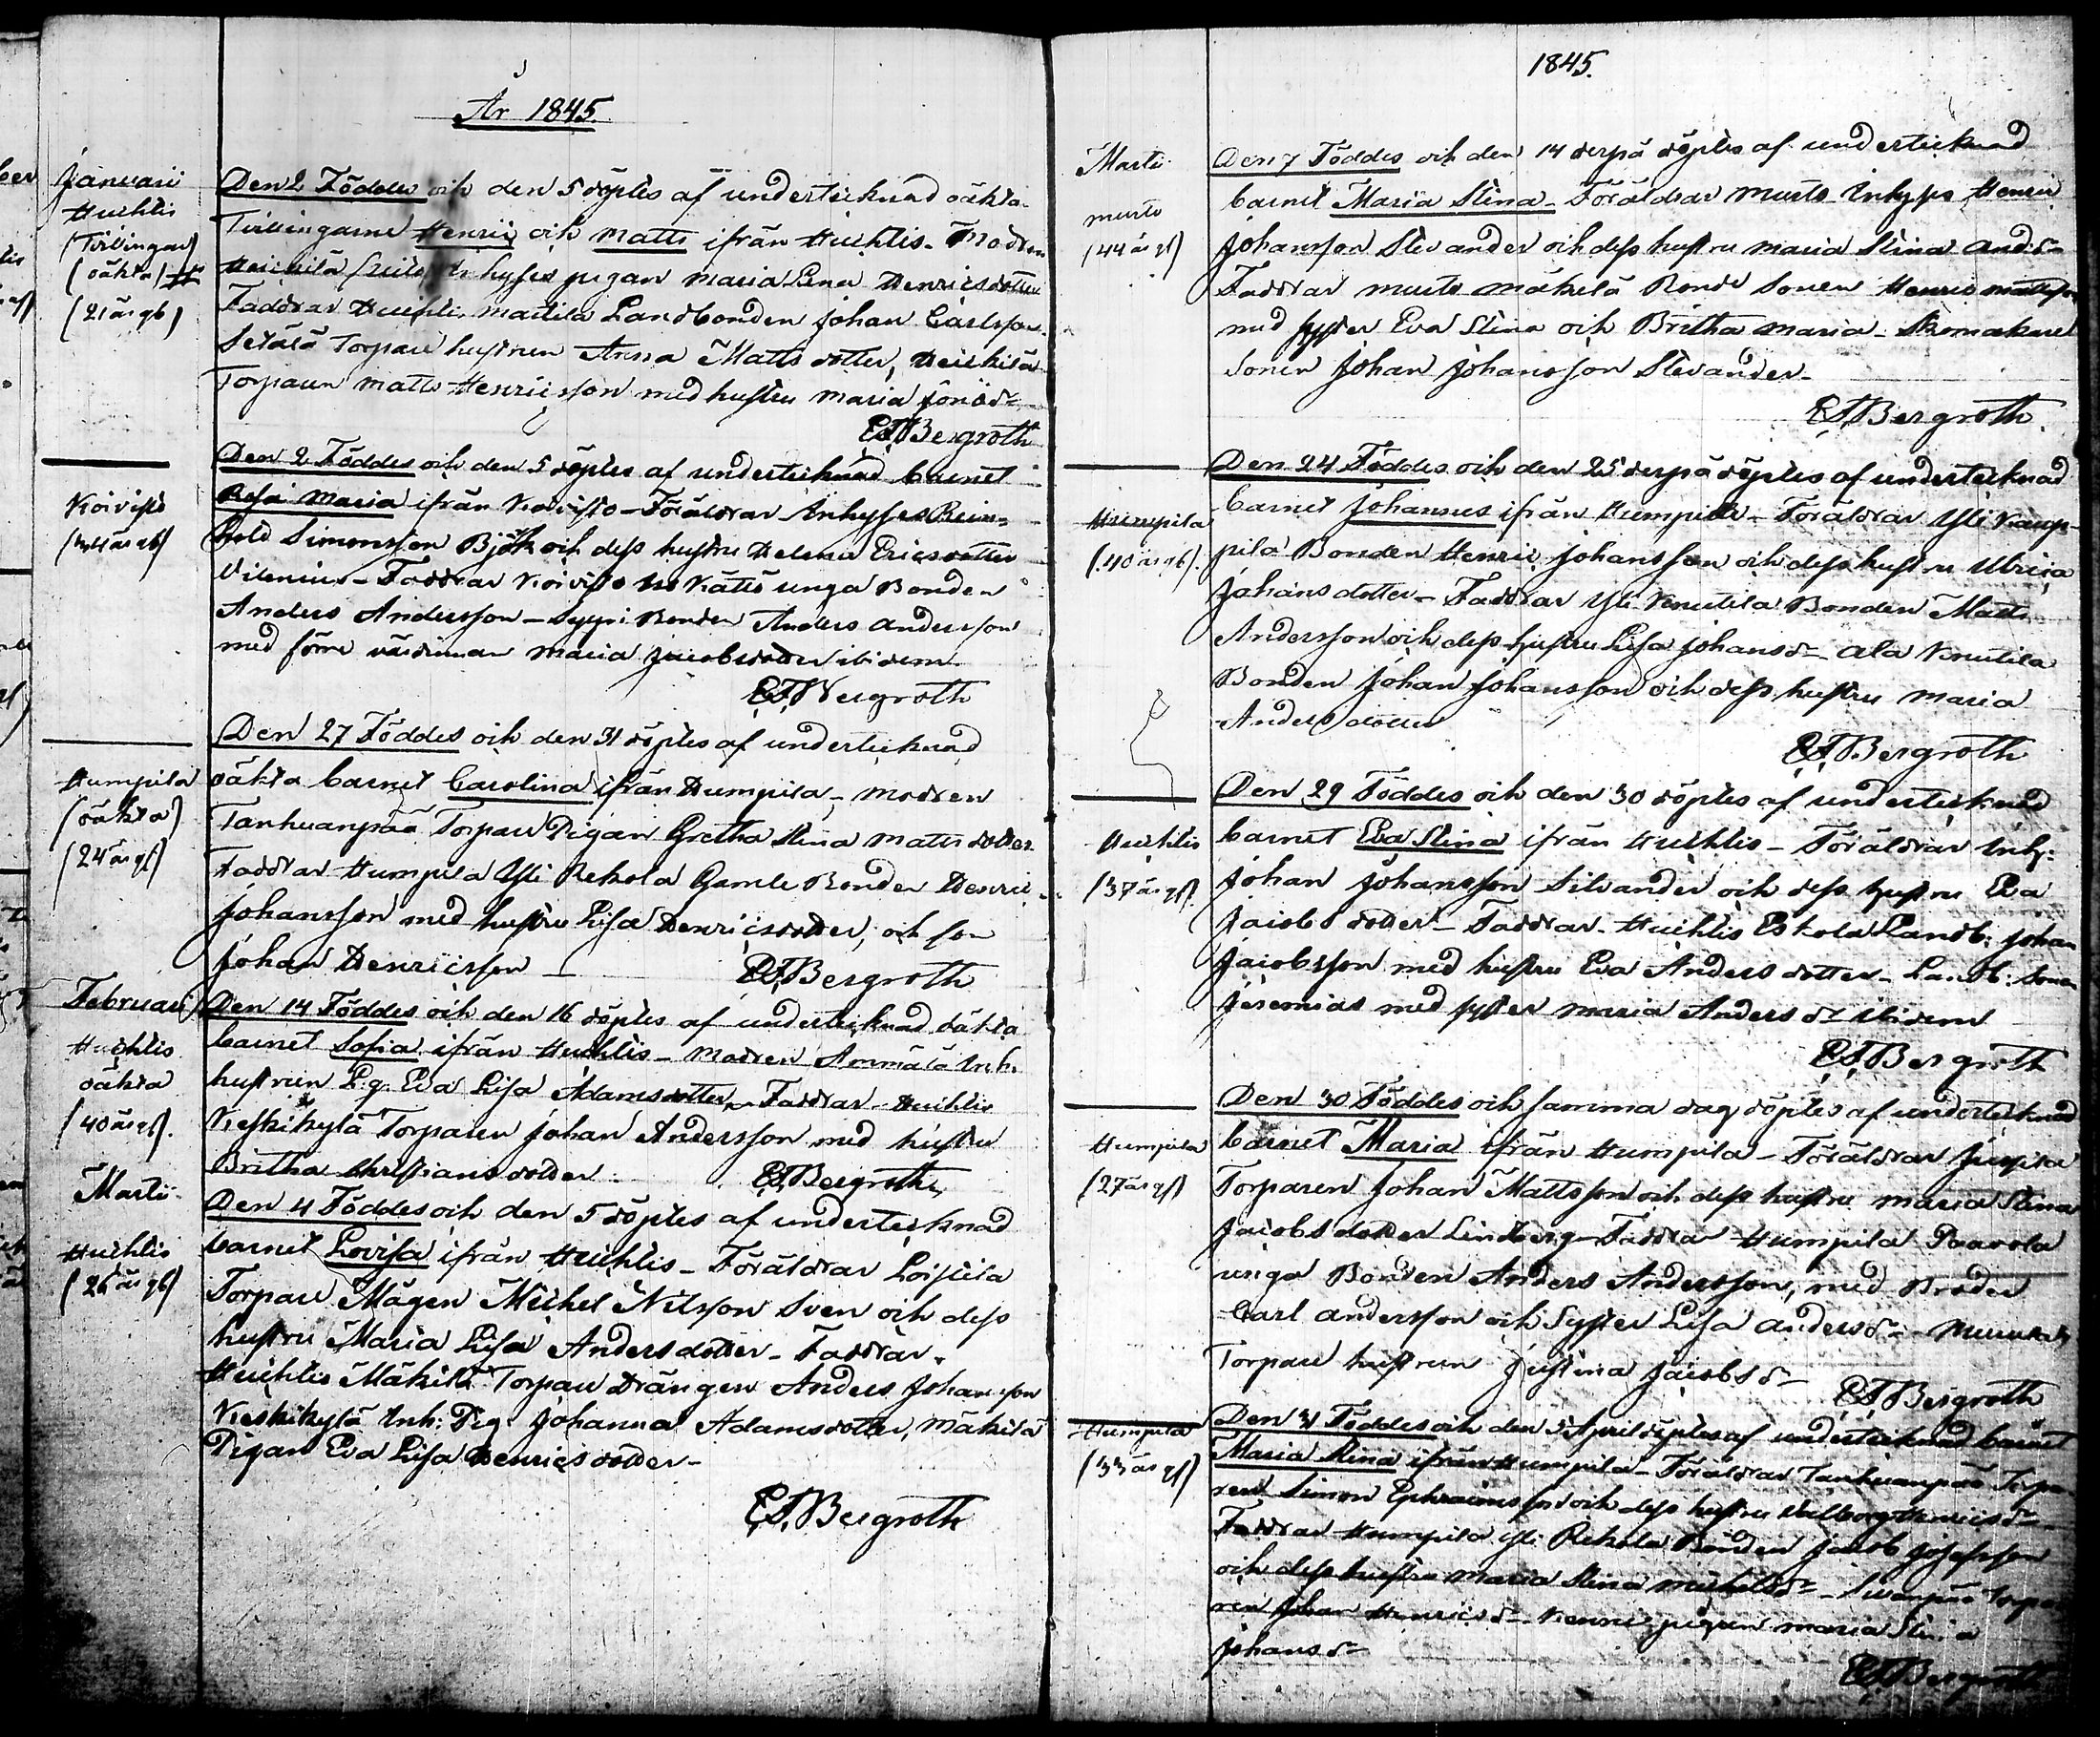 År 1845.
Januarii
Huehtis
(Tvillingar)
(oäkta)
(21 år gb)
Den 2 Föddes och den 5 döptes af undertecknad oäkta
Tvillingarne Henric och Matts ifrån Huehtis. Modren
Heikkilä hyses pigan Maria Lena Henricsdotter
Faddrar Huehtis Martila Landbonden Johan Carlsson
Setälä Torpare hustrun Anna Matts dotter, Heikkilä
Torparen Matts Henricsson med hustru Maria Jon:dr
EJBergroth
Koivisto
(34 år gb)
Den 2 Föddes och den 5 döptes af undertecknad barnet
Resa Maria ifrån Koivisto – Föräldrar Inhyses Rein=
hold Simonsson Björk och dess hustru Helena Ericsdotter
Vilenius – Faddrar Koivisto Kätis unga Bonden
Anders Andersson – Syyri Bonden Anders Andersson
med förre värdinnan Maria Jacobsdotter ibidem
EJBergroth
Humpila
(oäkta)
(24 år gl)
Den 27 Föddes och den 31 döptes af undertecknad
oäkta barnet Carolina ifrån Humpila – Modren
Tanhuanpää Torpare Pigan Gretha Stina Matts dotter
Faddrar Humpila Yli Rekola Gamle Bonden Henric
Johansson med hustru Lisa Henricsdotter, och son
Johan Henricsson –
EJBergroth
Februarii
Huehtis
oäkta
(40 år gl).
Den 14 Föddes och den 16 döptes af undertecknad oäkta
barnet Sofia ifrån Huehtis – Modren Ammälä Inh.
hustrun L.g. Eva Lisa Adamsdotter – Faddrar Huehtis
Keskikylä Torparen Johan Andersson med hustru
Britha Christiansdotter
EJBergroth
Martii
Huehtis
(26 år gb)
Den 4 Föddes och den 5 döptes af undertecknad
barnet Lovisa ifrån Huehtis – Föräldrar
Torpare Mågen Michel Nilsson Sven och dess
hustru Maria Lisa Andersdotter – Faddrar
Huehtis Mäkilä Torpare Drängen Anders Johansson
Keskikylä Inh: Pig: Johanna Adamsdotter, Mäkilä
Pigan Eva Lisa Henricsdotter –
EJBergroth
1845.
Martii
Murto
(44 år gl)
Den 7 Föddes och den 14 derpå döptes af undertecknad
barnet Maria Stina – Föräldrar Murto Inhyses Henric
Johansson Slevander och dess hustru Maria Stina And:dr
Faddrar Murto Mäkelä Bonde Sonen Henric Mattsson
med syster Eva Stina och Britha Maria – Skomakare
Sonen Johan Johansson Slevander –
EJBergroth
Humpila
(40 år gb).
Den 24 Föddes och den 25 derpå döptes af undertecknad
barnet Johannes ifrån Humpila – Föräldrar Yli Kaup-
pila Bonden Henric Johansson och dess hustru Ulrica
Johansdotter – Faddrar Yli Knutila Bonden Matts
Andersson och dess hustru Lisa Johansdr – Ala Knutila
Bonden Johan Johansson och dess hustru Maria
Andersdotter
EJBergroth
Huehtis
(37 år gl).
Den 29 Föddes och den 30 döptes af undertecknad
barnet Eva Stina ifrån Huehtis – Föräldrar Inhy:
Johan Johansson Silvander och dess hustru Eva
Jacobsdotter – Faddrar Huehtis Eskola Landb: Johan
Jacobsson med hustru Eva Andersdotter – Landb: Sonen
Jeremias med syster Maria Anders dr ibidem
EJBergroth
Humpila
(27 år gl)
Den 30 Föddes och samma dag döptes af undertecknad
barnet Maria ifrån Humpila – Föräldrar Juspila
Torparen Johan Mattsson och dess hustru Maria Stina
Jacobsdotter Lindberg – Faddrar Humpila Paavola
unga Bonden Anders Andersson, med Broder
Carl Andersson och Syster Lisa Andersdr –
Torpare hustrun Justina Jacobsdr
EJBergroth
Humpila
(33 år gl)
Den 31 Föddes och den 5 April döptes af undertecknad barnet
Maria Stina ifrån Humpila – Föräldrar Tanhuanpää Torpa
ren Simon Ephraimsson och dess hustru Walborg Henricsdr
Faddrar Humpila Yli Rekola Bonden Jacob Josefsson
och dess hustru Maria Stina Michelsdr – Torpa
ren Johan Henricsd – pigan Maria Stina
Johansdr
EJBergroth